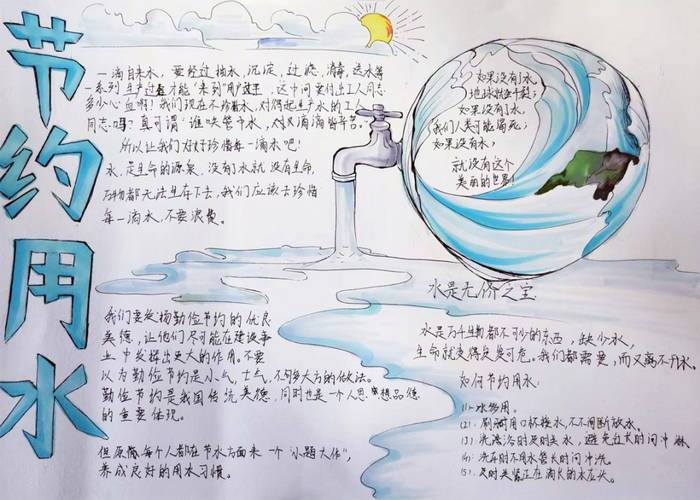 节约用水
一滴自来水，要经过抽水，沉淀，过滤，消毒，送水等
一系列生产过程才能"来到"用户家里，这中间要付出工人同志
多少心血啊！我们现在不珍惜水，对得起生产水的工人
同志吗？真可谓"谁哄管中水，滴滴皆辛苦。
所以让我们好好珍惜每一滴水吧！
水，是生命的源泉，没有了水就没有生命，
万物都无法生存下去，我们应该去珍惜
每一滴水，不要浪费。
如果没有了水，
地球就会干裂；
如果没有了水，
我们人类可能渴死；
如果没有水，
就没有这个
美丽的世界！
水是无价之宝
水是万千生物都不可少的东西，缺少水，
生命就变得岌岌可危。我们都需要，而又离不开水。
如何节约用水：
(1)：水多用。
(2)：刷牙时用口杯接水，不不间断放水。
(3)：洗澡浴时及时关水，避免过长时间冲淋
(4)：洗车时不用水管长时间冲洗。
(5)：及时关紧正在滴长的水龙头。
我们要发扬勤俭节约的优良
美德，让他们尽可能在建设事
业中发挥出更大的作用。不要
以为勤俭节约是小气，土气，不够大方的做法。
勤俭节约是我国传统美德，同时也是一个人思想品德
的重要体现。
但愿每个人都在节水方面来一个"小题大作"，
养成良好的用水习惯。